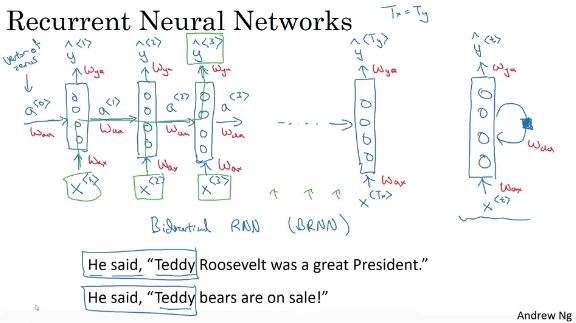 Recurrent Neural Networks
Tx = Ty
ŷ<1> ŷ<2> ŷ<3> ŷ<Ty> ŷ<t>
vector of zeros
Wya Wya Wya Wya Wya
a<0> a<1> a<2> a<3>
Waa Waa Waa Waa Waa
Wax Wax Wax Wax Wax
x<1> x<2> x<3> x<Tx> x<t>
Bidirectional RNN (BRNN)
He said, “Teddy Roosevelt was a great President.”
He said, “Teddy bears are on sale!”
Andrew Ng